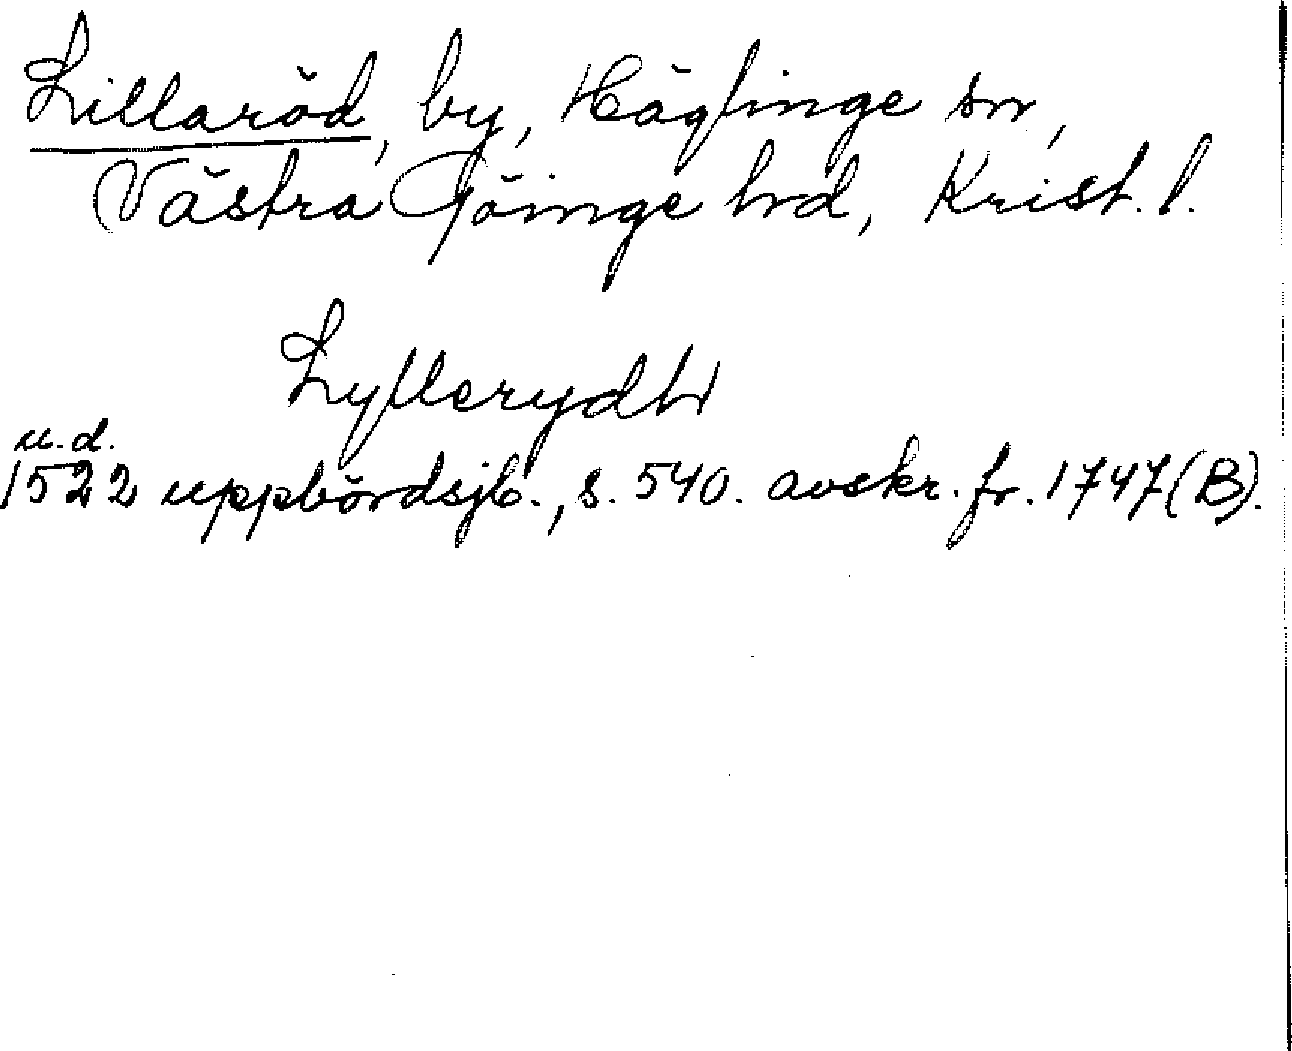 Lillaröd, by, Häglinge sn,
Västra Göinge hrd, Krist. l.
Lyllerydh
u.d.
1522 uppbördsjb., s. 540. avskr. fr. 1747 (B).